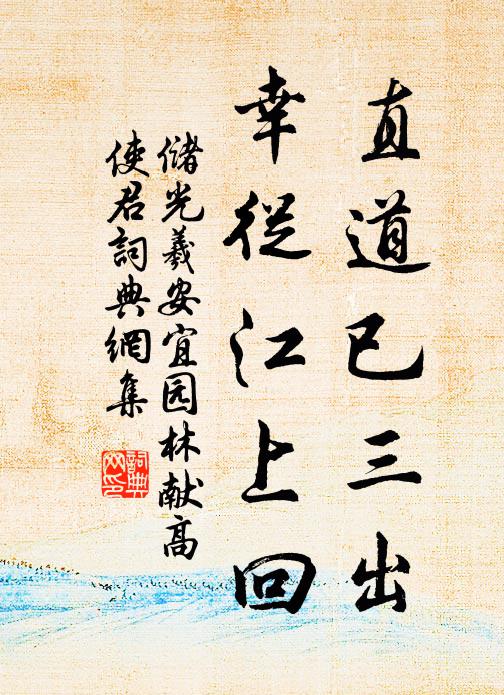 直道已三出
幸從江上回
儲光羲安宜园林献高
使君詞典網集
詞典
网印